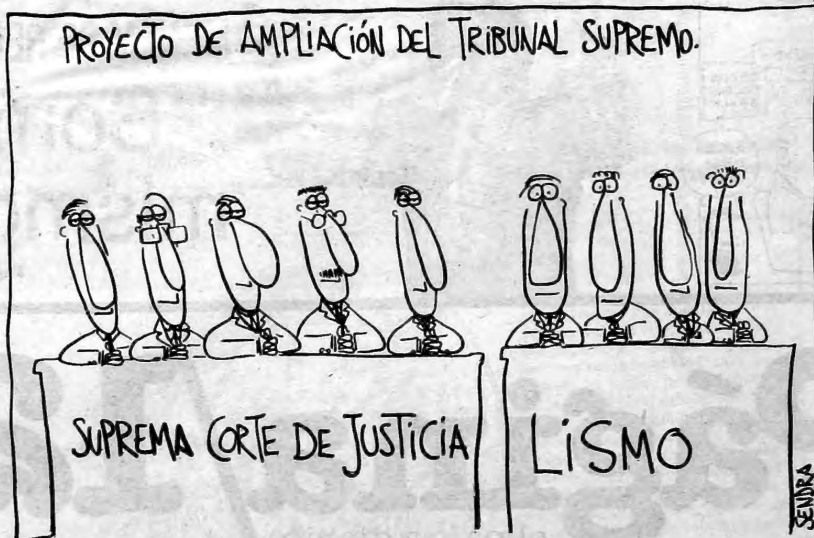 PROYECTO DE AMPLIACIÓN DEL TRIBUNAL SUPREMO.
SUPREMA CORTE DE JUSTICIA
LISMO
SENDRA